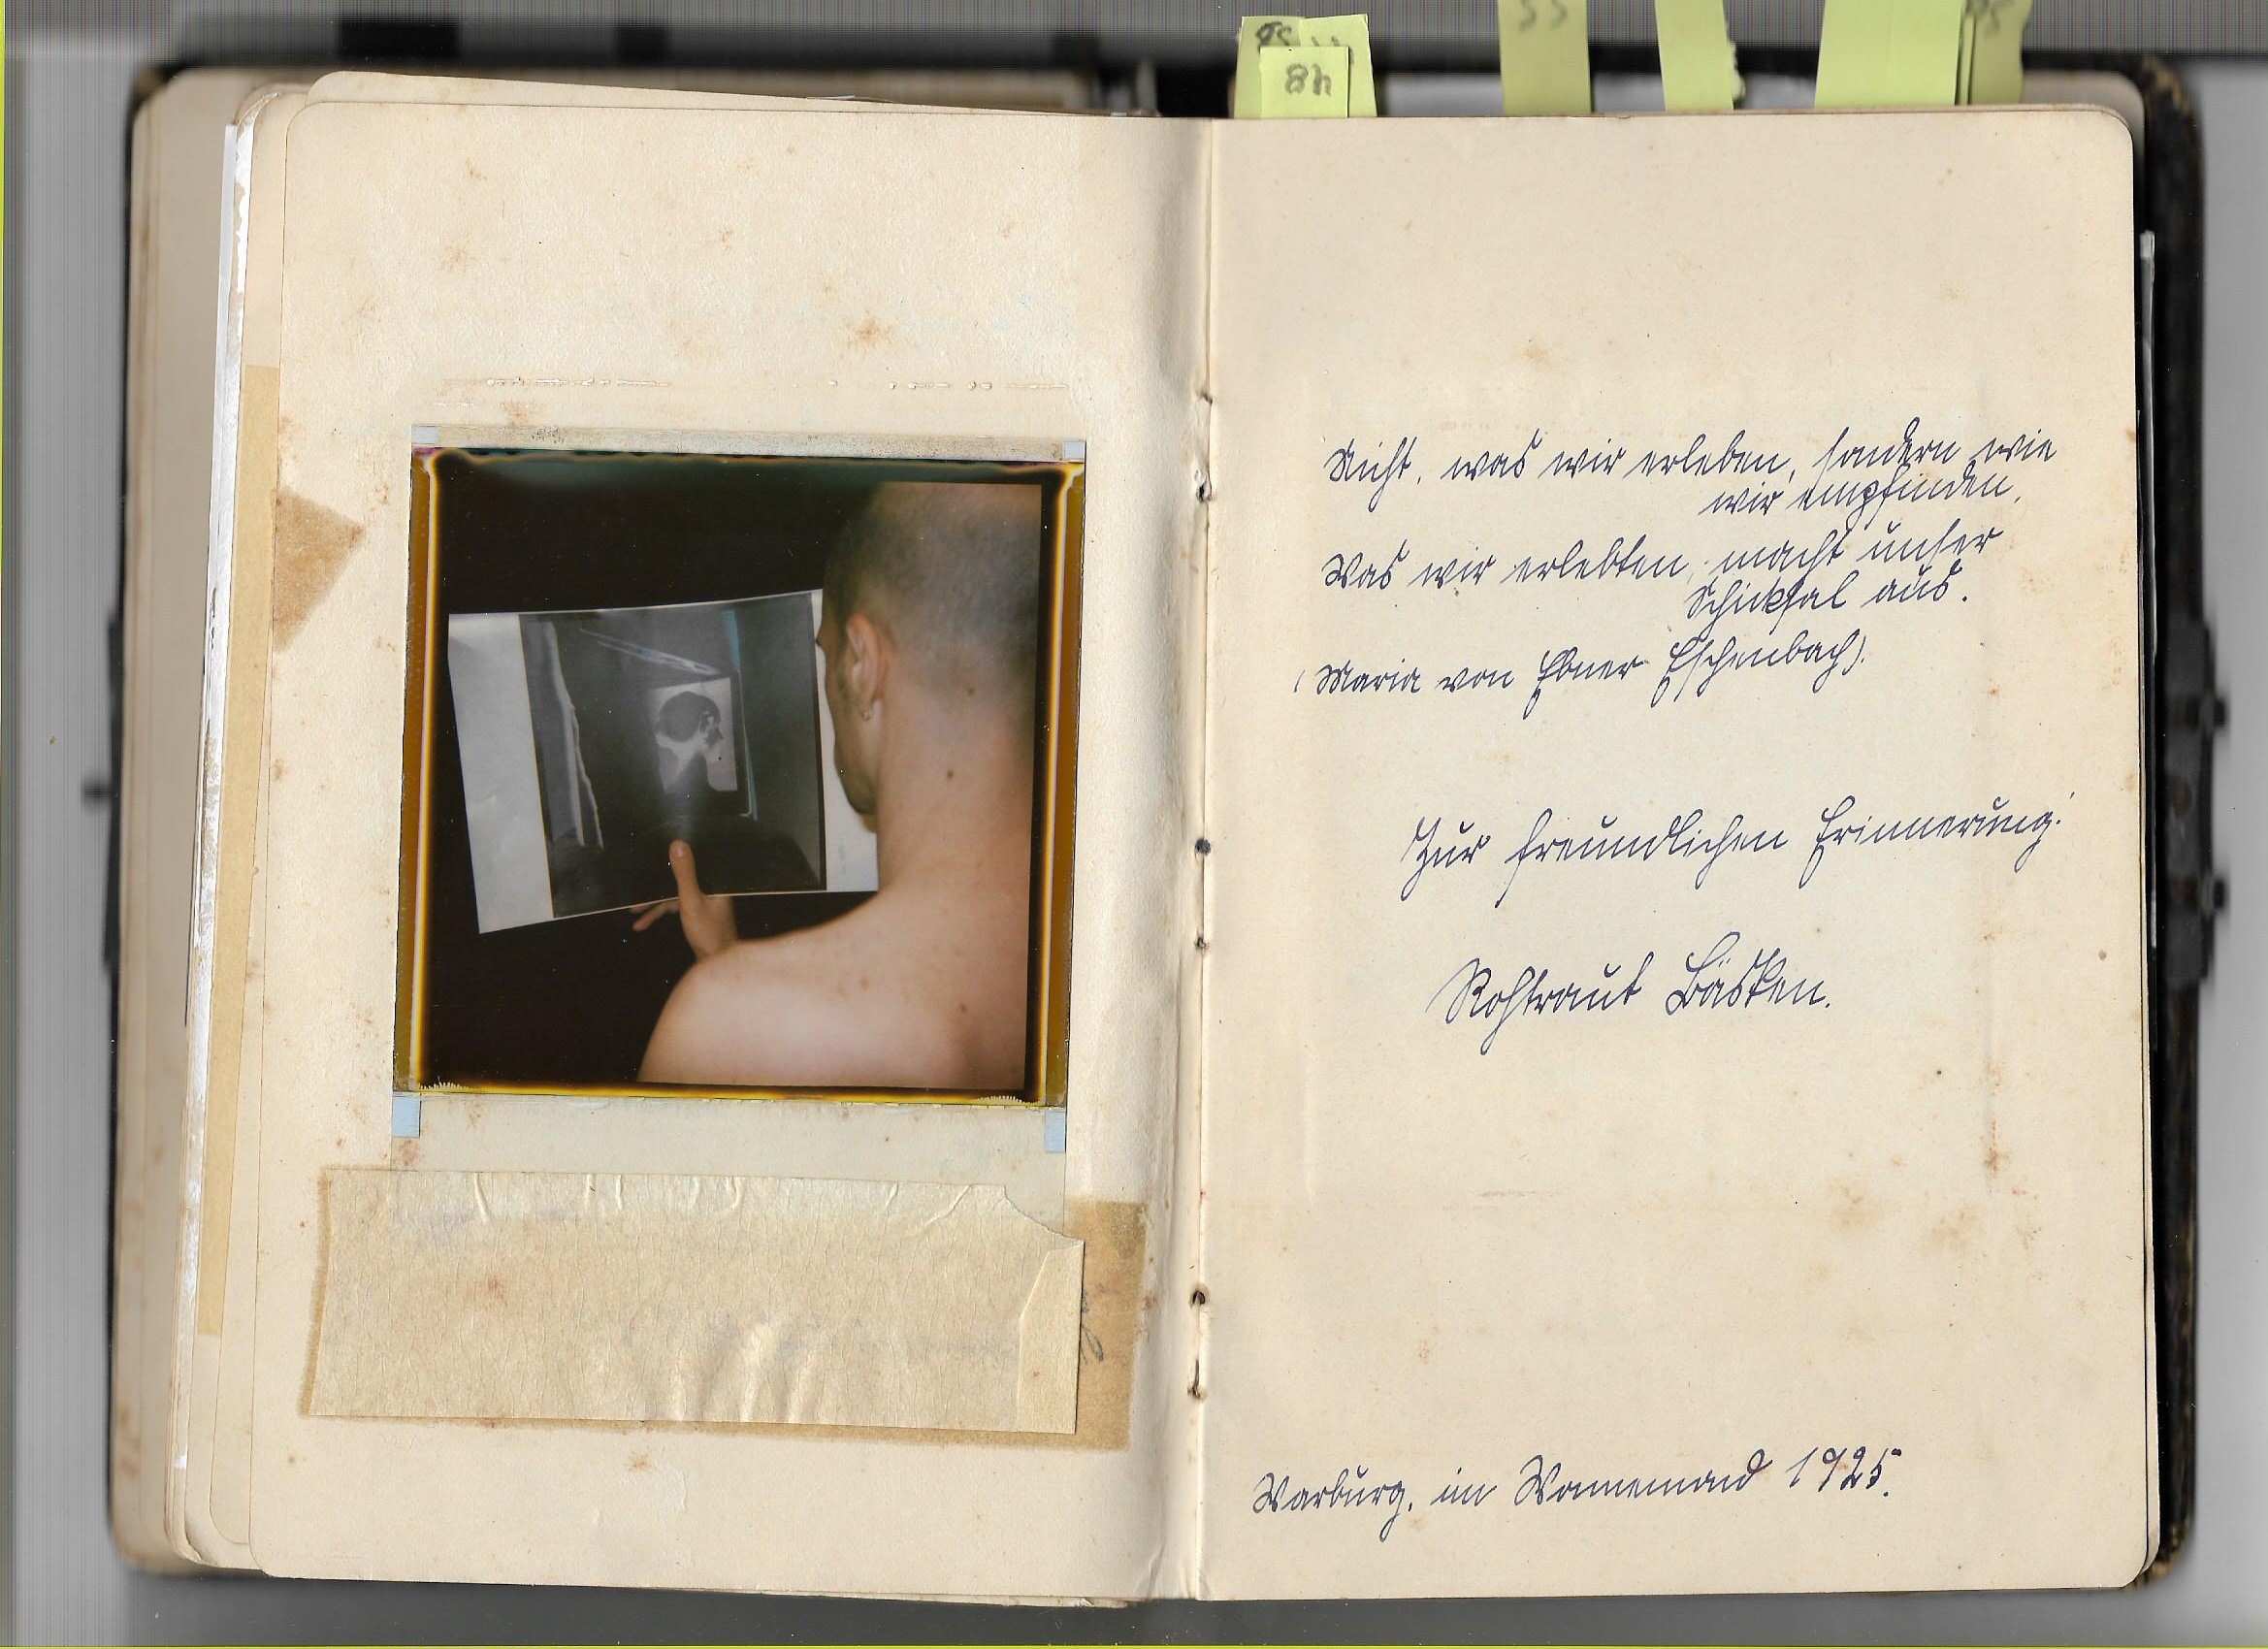 48
55
Nicht, was wir erleben, sondern wie
wir empfinden,
Was wir erlebten, macht unser
Schicksal aus.
(Maria von Ebner Eschenbach).
Zur freundlichen Erinnerung!
Rohtraut Bäsken.
Warburg, im Wonnemond 1925.